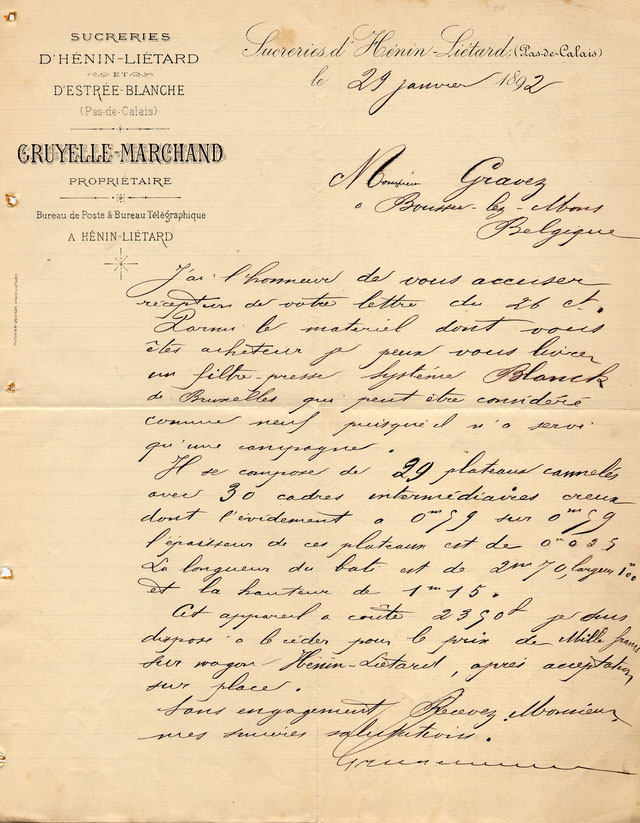 SUCRERIES
D'HÉNIN-LIÉTARD
ET
D'ESTRÉE-BLANCHE
(Pas-de-Calais)
GRUYELLE-MARCHAND
PROPRIÉTAIRE
Bureau de Poste & Bureau Télégraphique
A HÉNIN-LIÉTARD
Sucreries d'Hénin-Liétard, (Pas-de-Calais)
le 29 janvier 1892
Monsieur Gravez
à Boussu-lez-Mons
Belgique
J'ai l'honneur de vous accuser
réception de votre lettre du 26 ct.
Parmi le matériel dont vous
êtes acheteur je peux vous livrer
un filtre-presse système Blanck
de Bruxelles qui peut être considéré
comme neuf puisqu'il n'a servi
qu'une campagne.
Il se compose de 29 plateaux cannelés
avec 30 cadres intermédiaires creux
dont l'évidement a 0m59 sur 0m59
l'épaisseur de ces plateaux est de 0m025
La longueur du bati est de 2m70, largeur 1m00
et la hauteur de 1m15.
Cet appareil a coûté 2350f je suis
disposé à le céder pour le prix de Mille francs
sur wagon Hénin-Liétard, après acceptation
sur place.
Sans engagement Recevez Monsieur
mes sincères salutations.